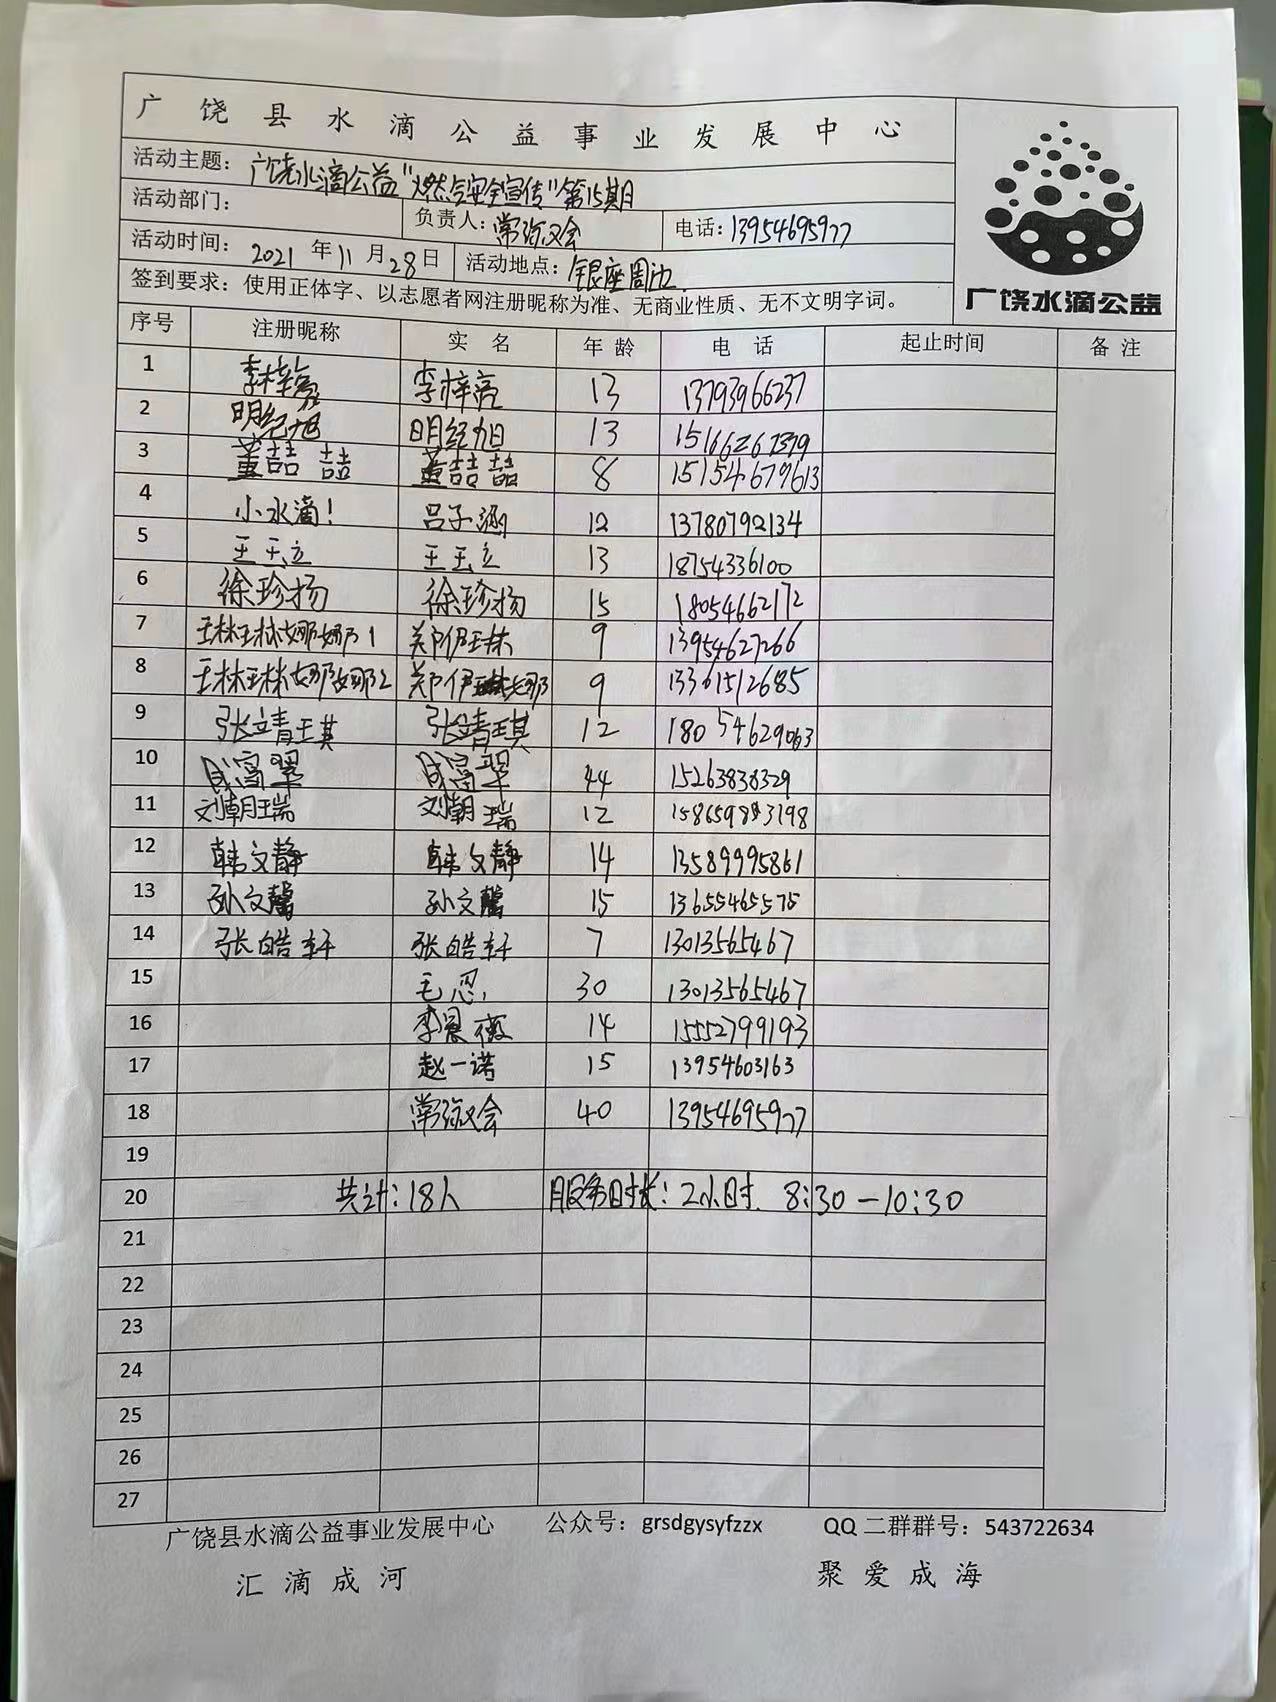 广饶县水滴公益事业发展中心
活动主题：广饶水滴公益“燃气安全宣传”第15期
活动部门： 负责人：常弥汉会 电话：13954695977
活动时间：2021年11月28日 活动地点：银座周边.
签到要求：使用正体字、以志愿者网注册昵称为准、无商业性质、无不文明字词。
广饶水滴公益
序号 注册昵称 实名 年龄 电话 起止时间 备注
1 李梓亮 李梓亮 13 13793966237
2 明纪旭 明纪旭 13 15166262379
3 董喆喆 董喆喆 8 15154679613
4 小水滴！ 吕子涵 12 13780792134
5 王玉立 王玉立 13 18754336100
6 徐珍扬 徐珍扬 15 18054662172
7 琳琳娜娜1 郑伊琳 9 13954627266
8 琳琳娜娜2 郑伊娜 9 13361512685
9 张靖琪 张靖琪 12 18054629063
10 成富翠 成富翠 44 15263838329
11 刘朝瑞 刘朝瑞 12
12 韩文静 韩文静 14 13589995861
13 孙文馨 孙文馨 15 13655465575
14 张皓轩 张皓轩 7 13013565467
15 毛忍 30 13013565467
16 李晨薇 14 15552799193
17 赵一诺 15 13954603163
18 40 13954695977
19
20 共计：18人 服务时长：2小时. 8:30—10:30
21
22
23
24
25
26
27
广饶县水滴公益事业发展中心 公众号：grsdgysyfzzx QQ二群群号：543722634
汇滴成河 聚爱成海